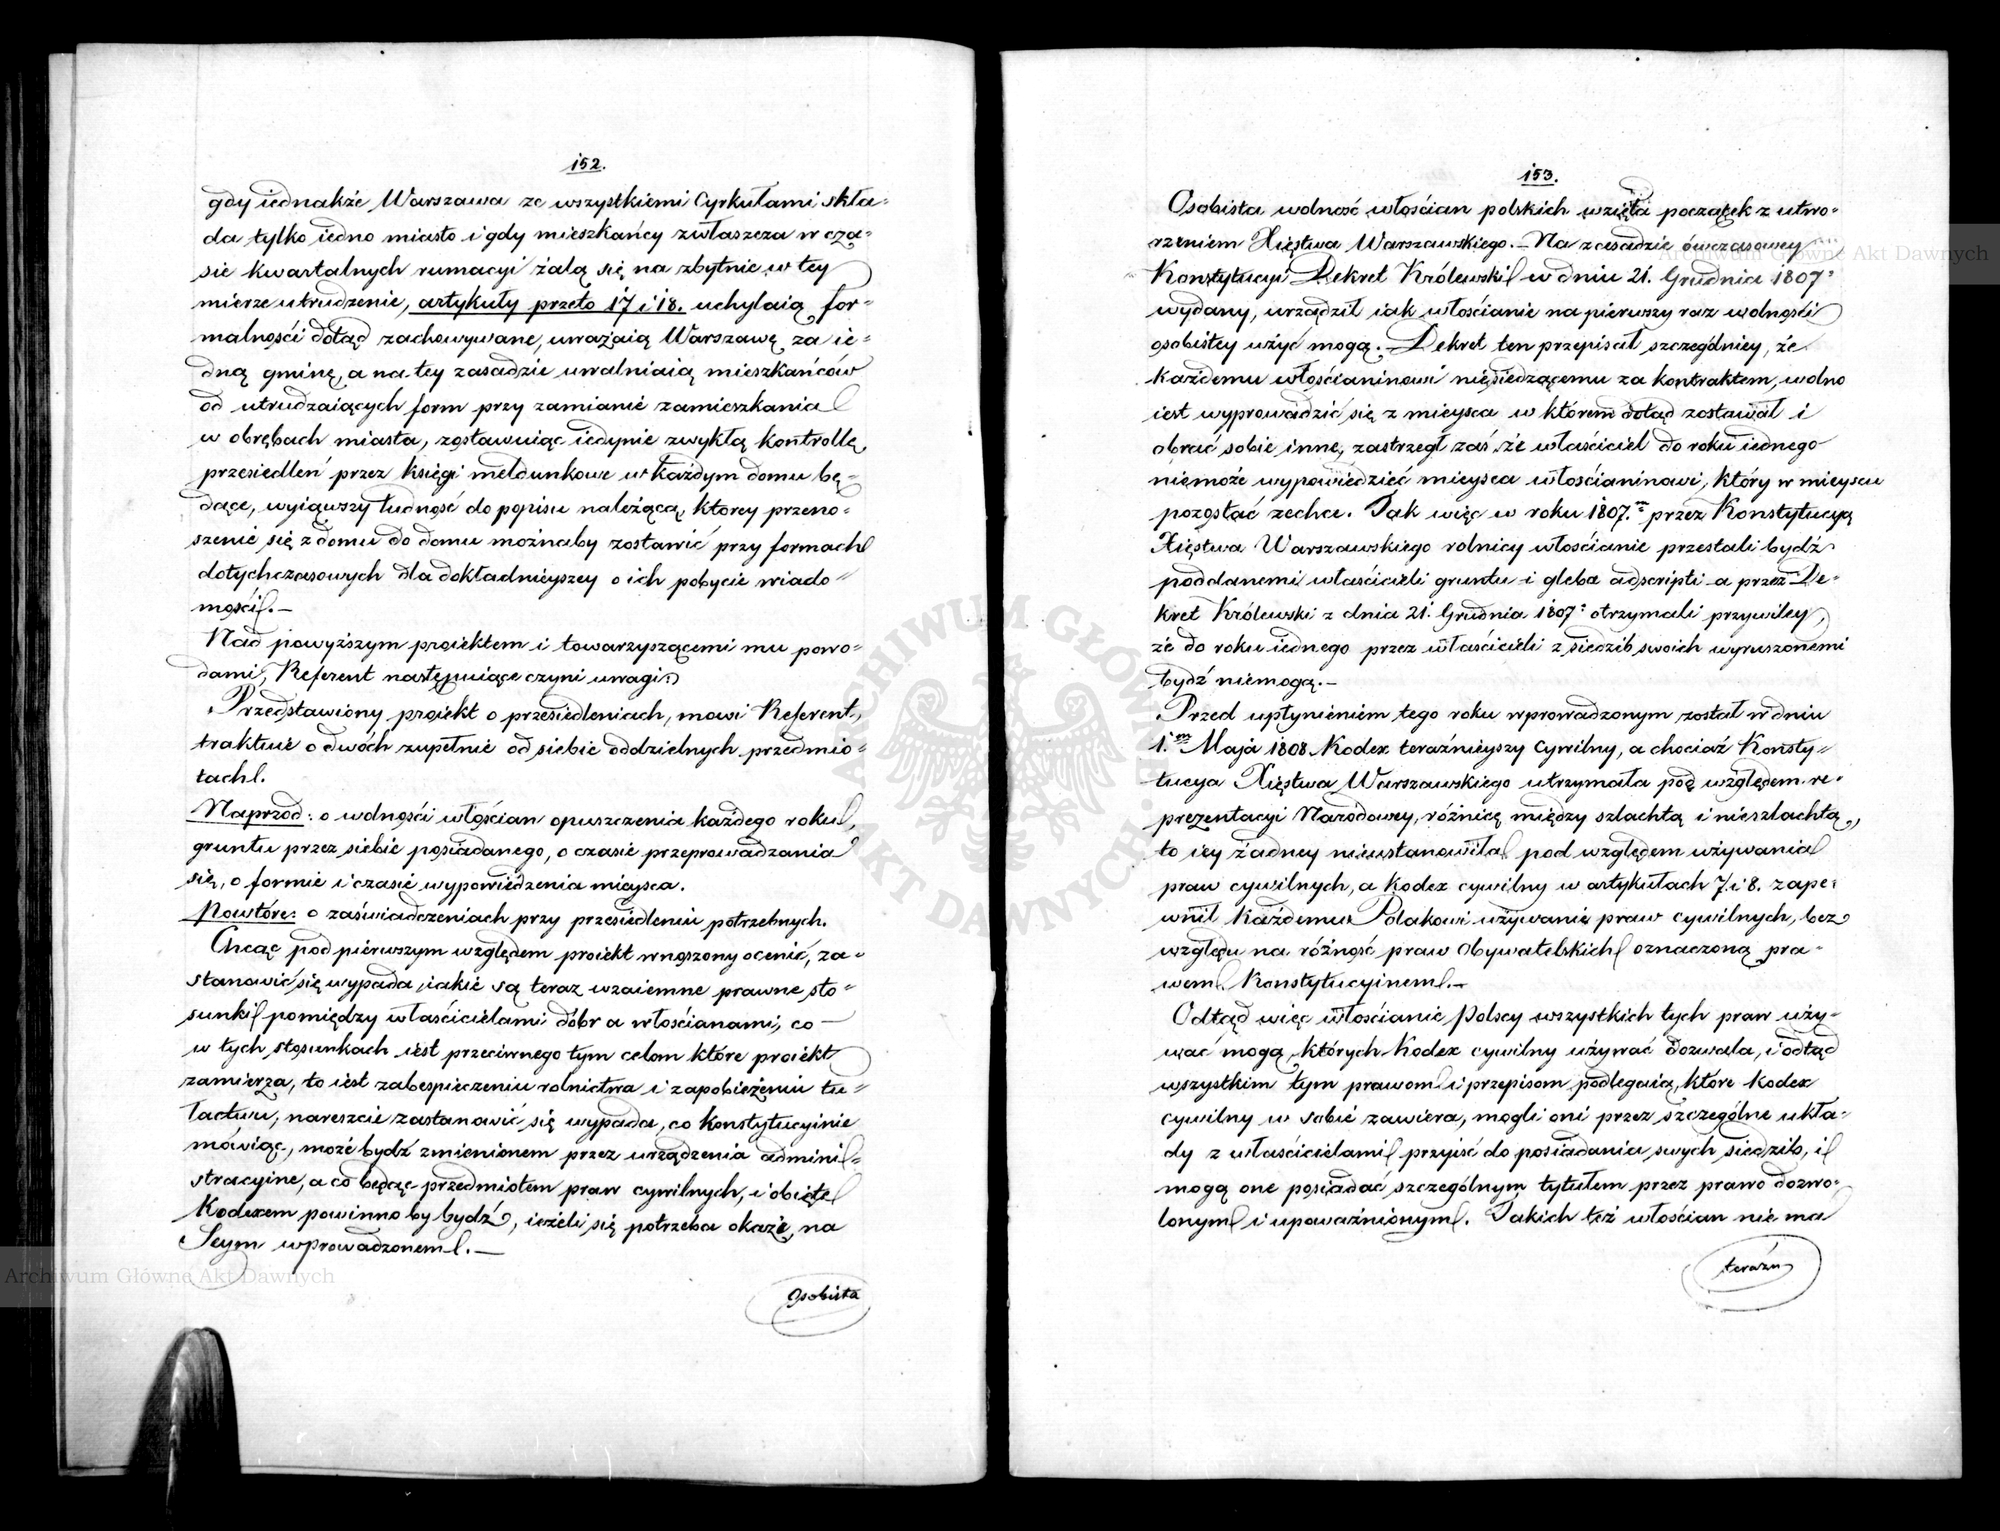 152.
gdy iednakże Warszawa ze wszystkiemi Cyrkułami skła-
da tylko iedno miasto i gdy mieszkańcy zwłaszcza w cza-
sie kwartalnych rumacyi żalą się na zbytnie w tey
mierze utrudzenie, artykuły przeto 17 i 18. uchylaią for-
malności dotąd zachowywane, uważaią Warszawę za ie-
dną gminę, a na tey zasadzie uwalniaią mieszkańców
od utrudzaiących form przy zamianie zamieszkania
w obrębach miasta, zostawuiąc iedynie zwykłą kontrollę
przesiedleń przez księgi meldunkowe w każdym domu bę-
dące, wyiąwszy ludność do popisu należącą, ktorey przeno-
szenie się z domu do domu możnaby zostawić przy formach
dotychczasowych dla dokładnieyszey o ich pobycie wiado-
mości.—
Nad powyższym proiektem i towarzyszącemi mu powo-
dami, Referent następuiące czyni uwagi:
Przedstawiony proiekt o przesiedleniach, mowi Referent,
traktuie o dwóch zupełnie od siebie oddzielnych przedmio-
tach.
Naprzód: o wolności włościan opuszczenia każdego roku,
gruntu przez siebie posiadanego, o czasie przeprowadzania
się, o formie i czasie wypowiedzenia mieysca.
Powtóre: o zaświadczeniach przy przesiedleniu potrzebnych.
Chcąc pod pierwszym względem proiekt wnoszony ocenić, za-
stanowić się wypada, iakie są teraz wzaiemne prawne sto-
sunki pomiędzy właścicielami dóbr a włościanami, co
w tych stosunkach iest przeciwnego tym celom które proiekt
zamierza, to iest zabespieczeniu rolnictwa i zapobieżeniu tu-
łactwu, nareszcie zastanowić się wypada, co konstytucyinie
mówiąc, może bydź zmienionem przez urządzenia admini-
stracyine, a co będąc przedmiotem praw cywilnych, i obięte
Kodexem powinno by bydź, ieżeli się potrzeba okaże, na
Seym wprowadzonem.—
Osobista
153.
Osobista wolność włościan polskich wzięła początek z utwo-
rzeniem Xięstwa Warszawskiego.— Na zasadzie ówczasowey
Konstytucyi Dekret Królewski w dniu 21. Grudnia 1807
wydany, urządził iak włościanie na pierwszy raz wolności
osobistey użyć mogą. Dekret ten przepisał szczególniey, że
każdemu włościaninowi niesiedzącemu za kontraktem, wolno
iest wyprowadzić się z mieysca w którem dotąd zostawał i
obrać sobie inne, zastrzegł zaś, że właściciel do roku iednego
niemoże wypowiedzieć mieysca włościaninowi, który w mieyscu
pozostać zechce. Tak więc w roku 1807.m przez Konstytucyą
Xięstwa Warszawskiego rolnicy włościanie przestali bydź
poddanemi właścicieli gruntu i glebæ adscripti a przez De-
kret Królewski z dnia 21. Grudnia 1807 otrzymali przywiley,
że do roku iednego przez właścicieli z siedzib swoich wyruszonemi
bydź niemogą.—
Przed upłynieniem tego roku wprowadzonym został w dniu
1.m Maja 1808 Kodex teraźnieyszy Cywilny, a chociaż Konsty-
tucya Xięstwa Warszawskiego utrzymała pod względem re-
prezentacyi Narodowey, różnicę między szlachtą i nieszlachtą,
to iey żadney nieustanowiła pod względem używania
praw cywilnych, a Kodex cywilny w artykułach 7. i 8. zape-
wnił każdemu Polakowi używanie praw cywilnych, bez
względu na różność praw Obywatelskich oznaczoną pra-
wem Konstytucyinem.—
Odtąd więc włościanie Polscy wszystkich tych praw uży-
wać mogą, których Kodex cywilny używać dozwala, i odtąd
wszystkim tym prawom i przepisom podlegaią, które Kodex
cywilny w sobie zawiera, mogli oni przez szczególne ukła-
dy z właścicielami przyiść do posiadania swych siedzib, i
mogą one posiadać szczególnym tytułem przez prawo dozwo-
lonym i upoważnionym. Takich też włościan nie ma
teraz
Archiwum Główne Akt Dawnych
Archiwum Główne Akt Dawnych
ARCHIWUM GŁÓWNE AKT DAWNYCH